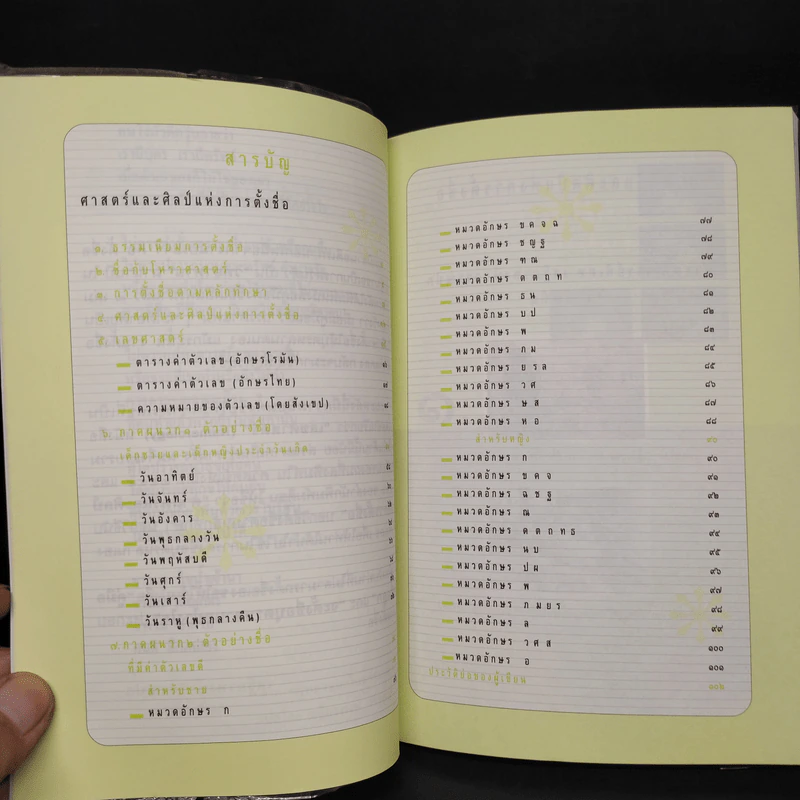 สารบัญ
ศาสตร์และศิลป์แห่งการตั้งชื่อ
๑. ธรรมเนียมการตั้งชื่อ
๒. ชื่อกับโหราศาสตร์
๓. การตั้งชื่อตามหลักทักษา
๔. ศาสตร์และศิลป์แห่งการตั้งชื่อ
๕. เลขศาสตร์
ตารางค่าตัวเลข (อักษรโรมัน)
ตารางค่าตัวเลข (อักษรไทย)
ความหมายของตัวเลข (โดยสังเขป)
๖. ภาคผนวก๑ ตัวอย่างชื่อ
เด็กชายและเด็กหญิงประจำวันเกิด
วันอาทิตย์
วันจันทร์
วันอังคาร
วันพุธกลางวัน
วันพฤหัสบดี
วันศุกร์
วันเสาร์
วันราหู (พุธกลางคืน)
๗. ภาคผนวก๒ ตัวอย่างชื่อ
ที่มีค่าตัวเลขดี
สำหรับชาย
หมวดอักษร ก
หมวดอักษร ขคจฉ ๗๗
หมวดอักษร ชญฐ ๗๘
หมวดอักษร ฑณ ๗๙
หมวดอักษร ดตถท ๘๐
หมวดอักษร ธน ๘๑
หมวดอักษร บป ๘๒
หมวดอักษร พ ๘๓
หมวดอักษร ภม ๘๔
หมวดอักษร ยรล ๘๕
หมวดอักษร วศ ๘๖
หมวดอักษร ษส ๘๗
หมวดอักษร หอ ๘๘
สำหรับหญิง ๙๐
หมวดอักษร ก ๙๐
หมวดอักษร ขคจ ๙๑
หมวดอักษร ฉชฐ ๙๒
หมวดอักษร ณ ๙๓
หมวดอักษร ดตถทธ ๙๔
หมวดอักษร นบ ๙๕
หมวดอักษร ปผ ๙๖
หมวดอักษร พ ๙๗
หมวดอักษร ภมยร ๙๘
หมวดอักษร ล ๙๙
หมวดอักษร วศส ๑๐๐
หมวดอักษร อ ๑๐๑
ประวัติย่อของผู้เขียน ๑๐๒